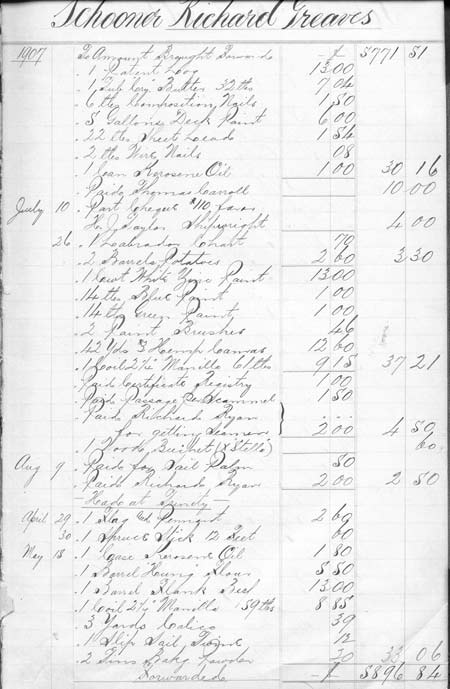 Schooner Richard Greaves
1907 To Amount Brought Forward 5771 51
. 1 Patent Log 13 00
. 1 Tub Butter 32 lbs 7 04
. 6 lbs Composition Nails 1 50
. 5 Gallons Deck Paint 6 00
. 22 lbs Sheet Lead 1 54
. 2 lbs Wire Nails 08
. 1 Can Kerosene Oil 1 00 30 16
. Paid Thomas Carroll 10 00
July 10 . Part Cheque $110
H. J. Taylor Shipwright 4 00
26 . 1 Labrador Chart 70
. 2 Barrels Potatoes 2 60 3 30
. 1 Cwt White Zinc Paint 13 00
. 14 lbs Blue Paint 1 00
. 14 lbs Green Paint 1 00
. 2 Paint Brushes 46
. 42 Yds 3 Hemp Canvas 12 60
. 1 Coil 2½ Manilla 61 lbs 9 15 37 21
. Paid Certificate Registry 1 00
. Paid Passage Per Scammel 1 50
. Paid Richard Ryan
for getting Seamen 2 00 4 50
. 1 Wood Bucket (X Stella) 60
Aug 9 . Paid for Sail Palm 50
. Paid Richard Ryan 2 00 2 50
— Head at Trinity —
April 29 . 1 Flag Pennant 2 60
30 . 1 Spruce Stick 12 Feet 60
May 18 . 1 Case Kerosene Oil 1 80
. 1 Barrel Flour 5 50
. 1 Barrel Flank Beef 13 00
. 1 Coil 2½ Manilla 59 lbs 8 85
. 3 Yards Calico 39
. 1 Slip Sail Twine 12
. 2 Tins Bakg Powder 20 33 06
Forwarded 5896 84